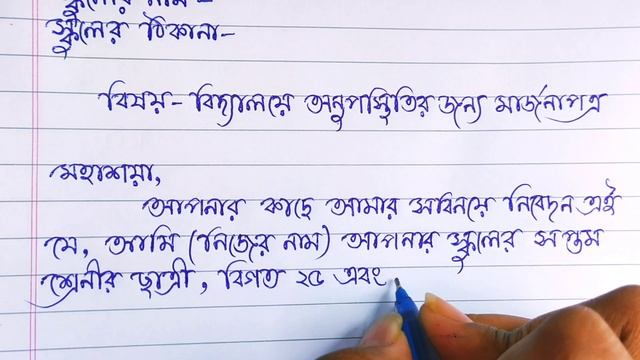 স্কুলের নাম -
স্কুলের ঠিকানা-
বিষয়- বিদ্যালয়ে অনুপস্থিতির জন্য মার্জনাপত্র
মহাশয়া,
আপনার কাছে আমার সবিনয়ে নিবেদন এই
যে, আমি (নিজের নাম) আপনার স্কুলের সপ্তম
শ্রেনীর ছাত্রী, বিগত ২৫ এবং